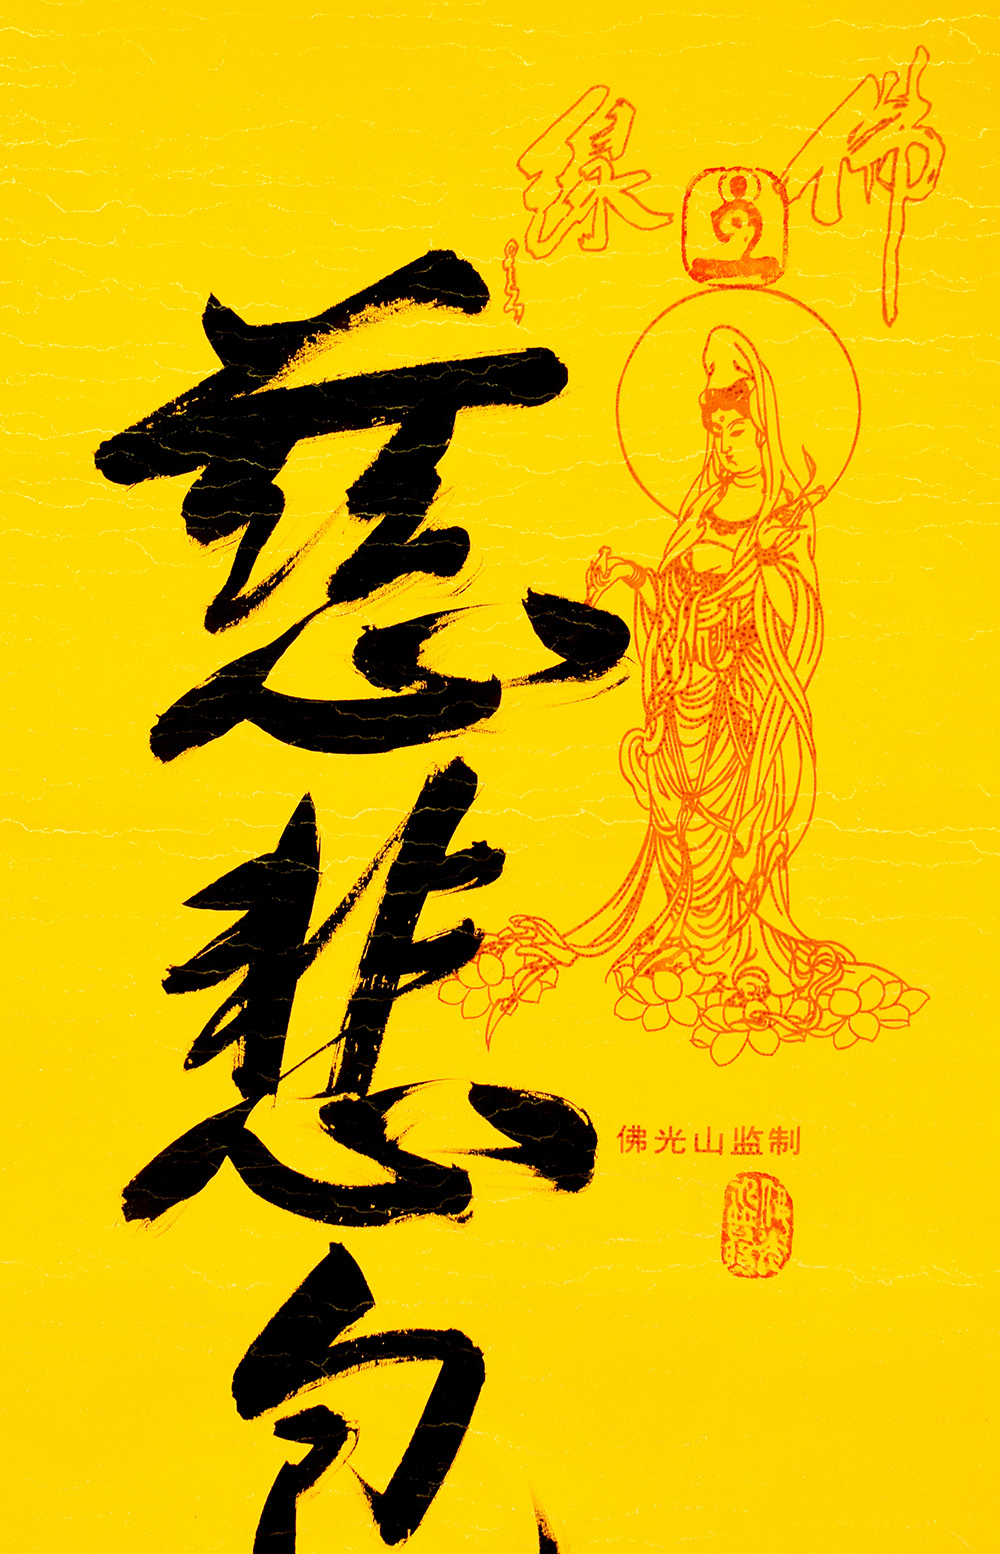 佛緣
慈悲包
佛光山监制